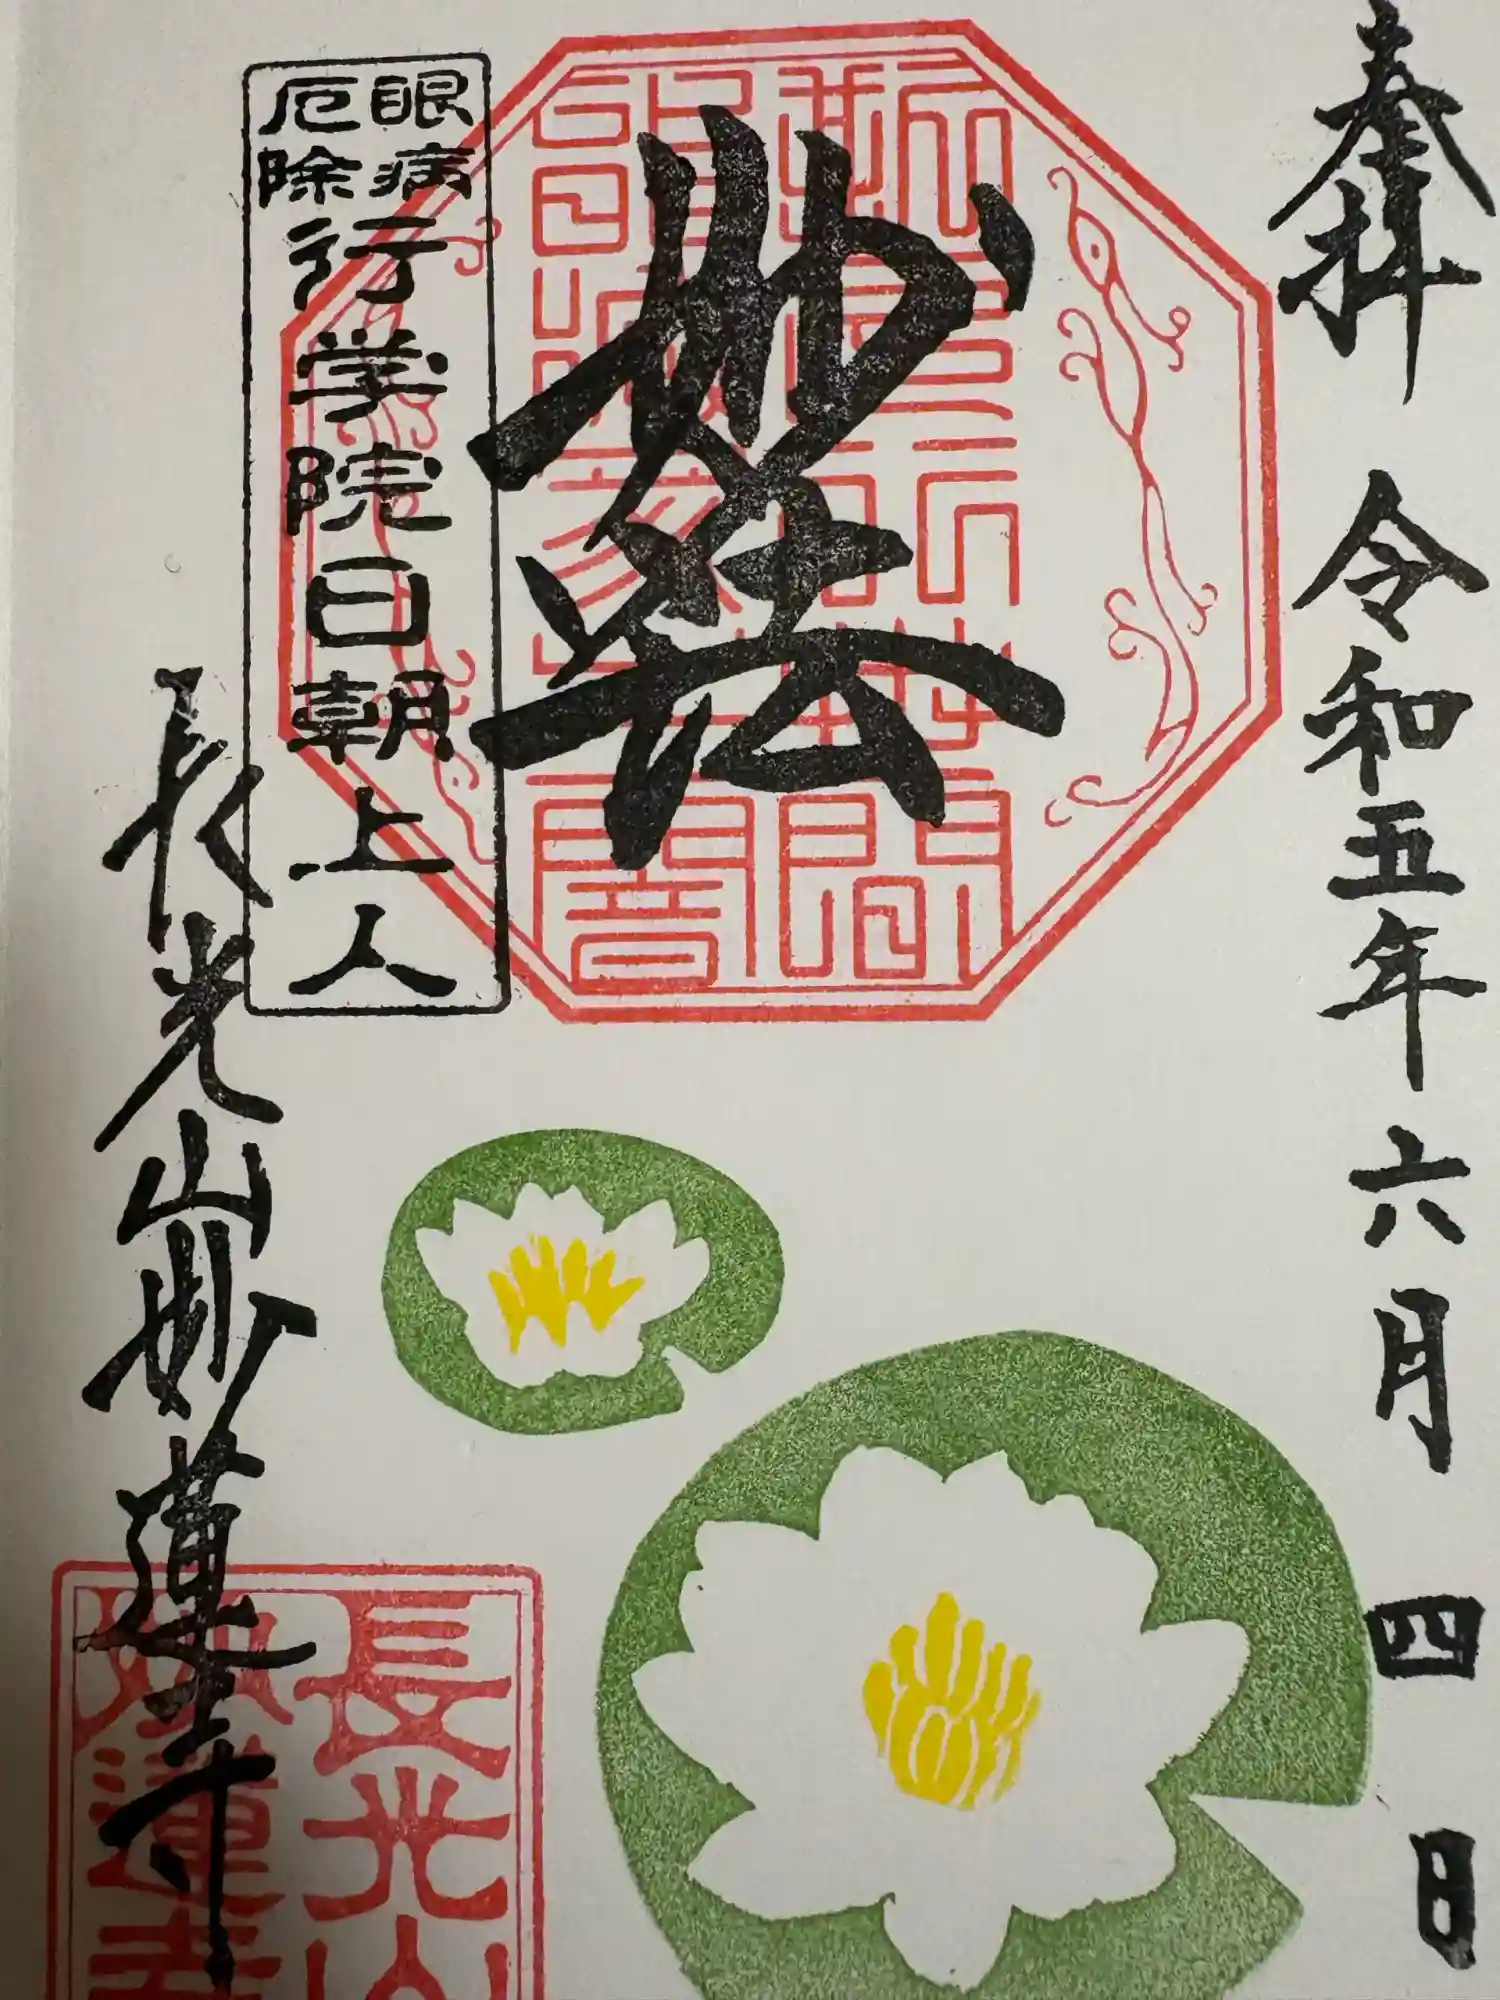 奉拝 令和五年六月四日
妙法
眼病
厄除
行学院日朝上人
長光山妙蓮寺
長光山
妙蓮寺